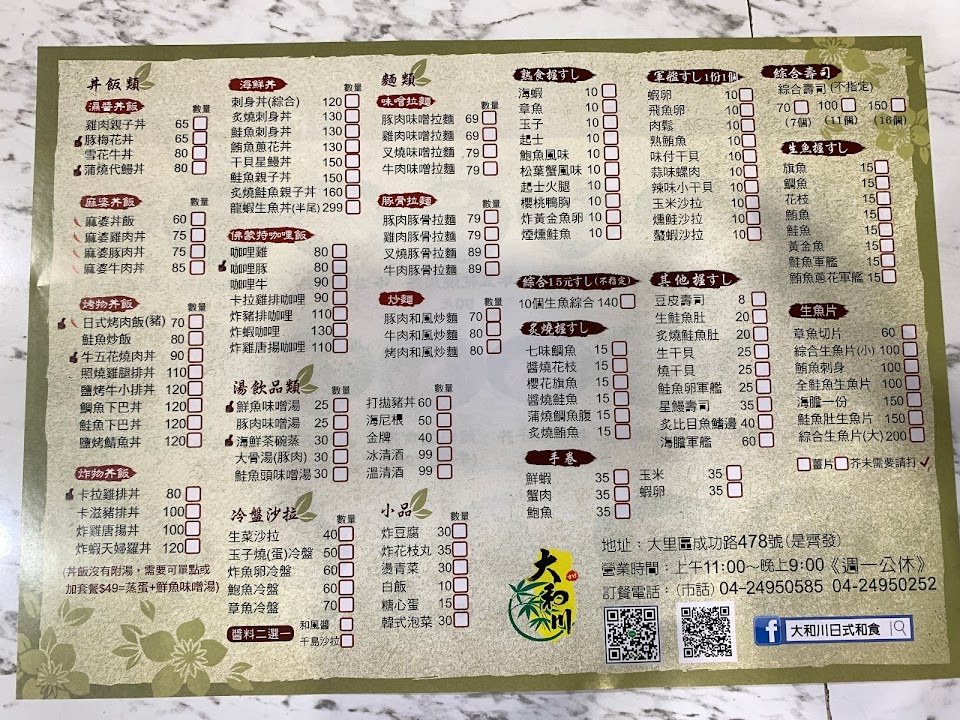 丼飯類
溫醬丼飯 數量
雞肉親子丼 65
豚梅花丼 65
雪花牛丼 80
蒲燒代鰻丼 80
麻婆丼飯 數量
麻婆丼飯 60
麻婆雞肉丼 75
麻婆豚肉丼 75
麻婆牛肉丼 85
烤物丼飯 數量
日式烤肉飯(豬) 70
鮭魚炒飯 80
牛五花燒肉丼 90
照燒雞腿排丼 110
鹽烤牛小排丼 120
鯛魚下巴丼 120
鮭魚下巴丼 120
鹽烤鯖魚丼 120
炸物丼飯
卡拉雞排丼 80
卡滋豬排丼 100
炸雞唐揚丼 100
炸蝦天婦羅丼 120
(丼飯沒有附湯，需要可單點或
加套餐$49=蒸蛋+鮮魚味噌湯)
海鮮丼 數量
刺身丼(綜合) 120
炙燒刺身丼 130
鮭魚刺身丼 130
鮪魚蔥花丼 130
干貝星鰻丼 150
鮭魚親子丼 150
炙燒鮭魚親子丼 160
龍蝦生魚丼(半尾) 299
佛蒙特咖哩飯 數量
咖哩雞 80
咖哩豚 80
咖哩牛 90
卡拉雞排咖哩 90
炸豬排咖哩 110
炸蝦咖哩 130
炸雞唐揚咖哩 110
湯飲品類 數量
鮮魚味噌湯 25
豚肉味噌湯 25
海鮮茶碗蒸 30
大骨湯(豚肉) 30
鮭魚頭味噌湯 30
冷盤沙拉 數量
生菜沙拉 40
玉子燒(蛋)冷盤 50
炸魚卵冷盤 60
鮑魚冷盤 60
章魚冷盤 70
醬料二選一
和風醬
千島沙拉
麵類
味噌拉麵 數量
豚肉味噌拉麵 69
雞肉味噌拉麵 69
叉燒味噌拉麵 79
牛肉味噌拉麵 79
豚骨拉麵 數量
豚肉豚骨拉麵 79
雞肉豚骨拉麵 79
叉燒豚骨拉麵 89
牛肉豚骨拉麵 89
炒麵 數量
豚肉和風炒麵 70
牛肉和風炒麵 80
烤肉和風炒麵 80
數量
打拋豬丼 60
海尼根 50
金牌 40
冰清酒 99
溫清酒 99
小品 數量
炸豆腐 30
炸花枝丸 35
燙青菜 30
白飯 10
糖心蛋 15
韓式泡菜 30
熟食握すし
海蝦 10
章魚 10
玉子 10
起士 10
鮑魚風味 10
松葉蟹風味 10
起士火腿 10
櫻桃鴨胸 10
炸黃金魚卵 10
煙燻鮭魚 10
綜合15元すし(不指定)
10個生魚綜合 140
炙燒握すし
七味鯛魚 15
醬燒花枝 15
櫻花旗魚 15
醬燒鮭魚 15
蒲燒鯛魚腹 15
炙燒鮪魚 15
手卷
鮮蝦 35
蟹肉 35
鮑魚 35
玉米 35
蝦卵 35
軍艦すし1份1個
蝦卵 10
飛魚卵 10
肉鬆 10
熟鮪魚 10
味付干貝 10
蒜味螺肉 10
辣味小干貝 10
玉米沙拉 10
燻鮭沙拉 10
螯蝦沙拉 10
其他握すし
豆皮壽司 8
生鮭魚肚 20
炙燒鮭魚肚 20
生干貝 25
燒干貝 25
鮭魚卵軍艦 25
星鰻壽司 35
炙比目魚鰭邊 40
海膽軍艦 60
綜合壽司
綜合壽司(不指定)
70 100 150
(7個) (11個) (16個)
生魚握すし
旗魚 15
鯛魚 15
花枝 15
鮪魚 15
鮭魚 15
黃金魚 15
鮭魚軍艦 15
鮪魚蔥花軍艦 15
生魚片
章魚切片 60
綜合生魚片(小) 100
鮪魚刺身 100
全鮭魚生魚片 100
海膽一份 150
鮭魚肚生魚片 150
綜合生魚片(大) 200
薑片 芥末需要請打✓
大和川
地址：大里區成功路478號(是齊發)
營業時間：上午11:00～晚上9:00《週一公休》
訂餐電話：(市話) 04-24950585 04-24950252
f 大和川日式和食